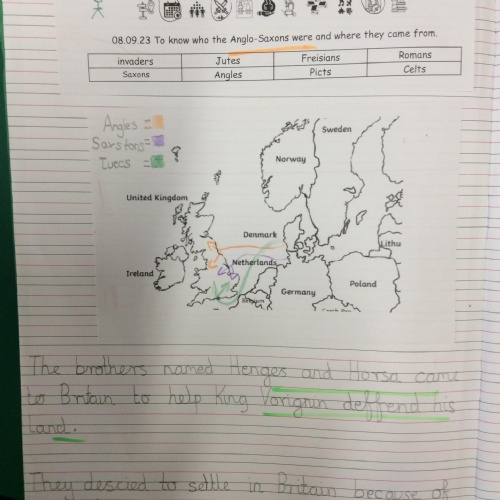 08.09.23 To know who the Anglo-Saxons were and where they came from.
invaders Jutes Freisians Romans
Saxons Angles Picts Celts
Angles =
Sarstons=
Tuecs =
Sweden
Norway
United Kingdom
Denmark
Lithu
Netherlands
Ireland
Germany
Poland
Belgium
The brothers named Henges and Horsa came
to Britain to help King Vorignun deffend his
land.
They descied to settle in Britain because of